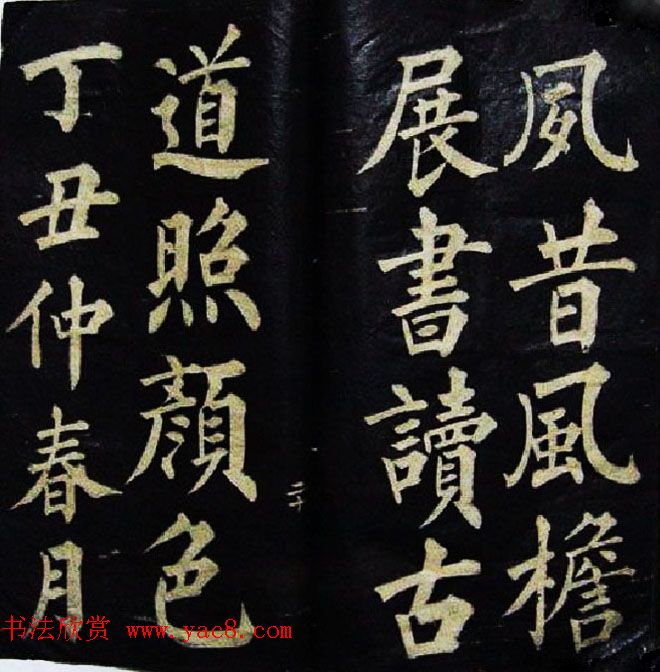 夙昔風檐
展書讀古
二十
道照顔色
丁丑仲春月
书法欣赏 www.yac8.com